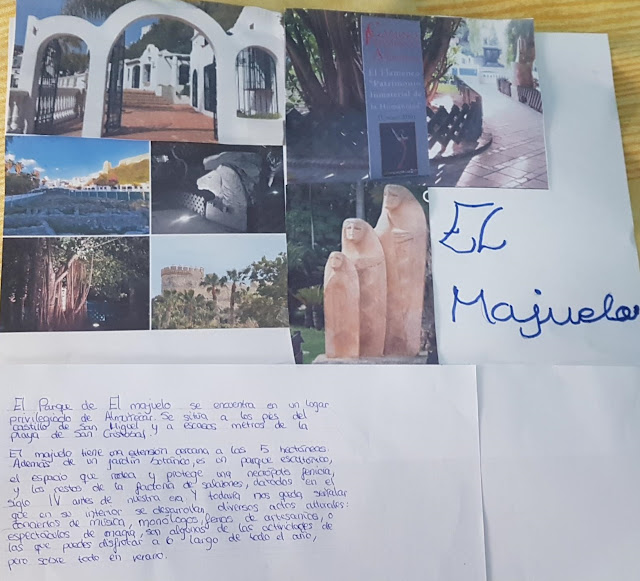 El Flamenco
Patrimonio
Inmaterial de
la Humanidad
EL
Majuelo
El Parque de El majuelo se encuentra en un lugar
privilegiado de Almuñécar. Se sitúa a los pies del
castillo de San Miguel y a escasos metros de la
playa de San Cristobal.
El majuelo tiene una extensión cercana a las 5 hectáreas.
Además de un jardín botánico, es un parque escultórico,
el espacio que rodea y protege una necrópolis fenicia,
y los restos de la factoría de salazones, datados en el
siglo IV antes de nuestra era y todavía nos queda señalar
que en su interior se desarrollan, diversos actos culturales:
conciertos de música, monólogos, ferias de artesanías, o
espectáculos de magia, son algunas de las actividades de
las que puedes disfrutar a lo largo de todo el año,
pero sobre todo en verano.